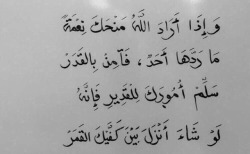 وَإِذَا أَرَادَ اللَّهُ مَنْحَكَ نِعْمَةً
مَا رَدَّهَا أَحَدٌ، فَآمِنْ بِالقَدَرْ
سَلِّمْ أُمُورَكَ لِلْقَدِيرِ فَإِنَّهُ
لَوْ شَاءَ أَنْزَلَ بَيْنَ كَفَّيْكَ القَمَرْ